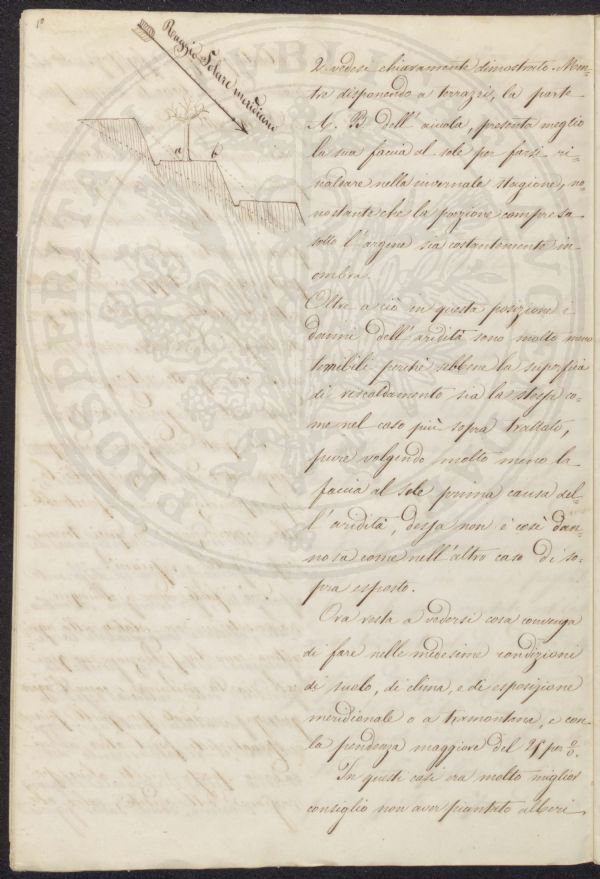 10
Raggio Solare meridiano
a b
2 vedesi chiaramente dimostrato. Men=
tre disponendo a terrazzi, la parte
A, B dell' aiuola, presenta meglio
la sua faccia al sole per farsi ri=
scaldare nella invernale stagione, no=
nostante che la porzione compresa
sotto l'argine sia costantemente in
ombra.
Oltre a ciò in questa posizione i
danni dell' aridità sono molto meno
temibili perchè sebbene la superficie
di riscaldamento sia la stessa co=
me nel caso più sopra trattato,
pure volgendo molto meno la
faccia al sole prima causa del=
l'aridità, dessa non è così dan=
nosa come nell'altro caso di so=
pra esposto.
Ora resta a vedersi cosa convenga
di fare nelle medesime condizioni
di suolo, di clima, e di esposizione
meridionale o a tramontana, e con
la pendenza maggiore del 25 per %.
In questi casi era molto miglior
consiglio non aver piantato alberi
PROSPERITA